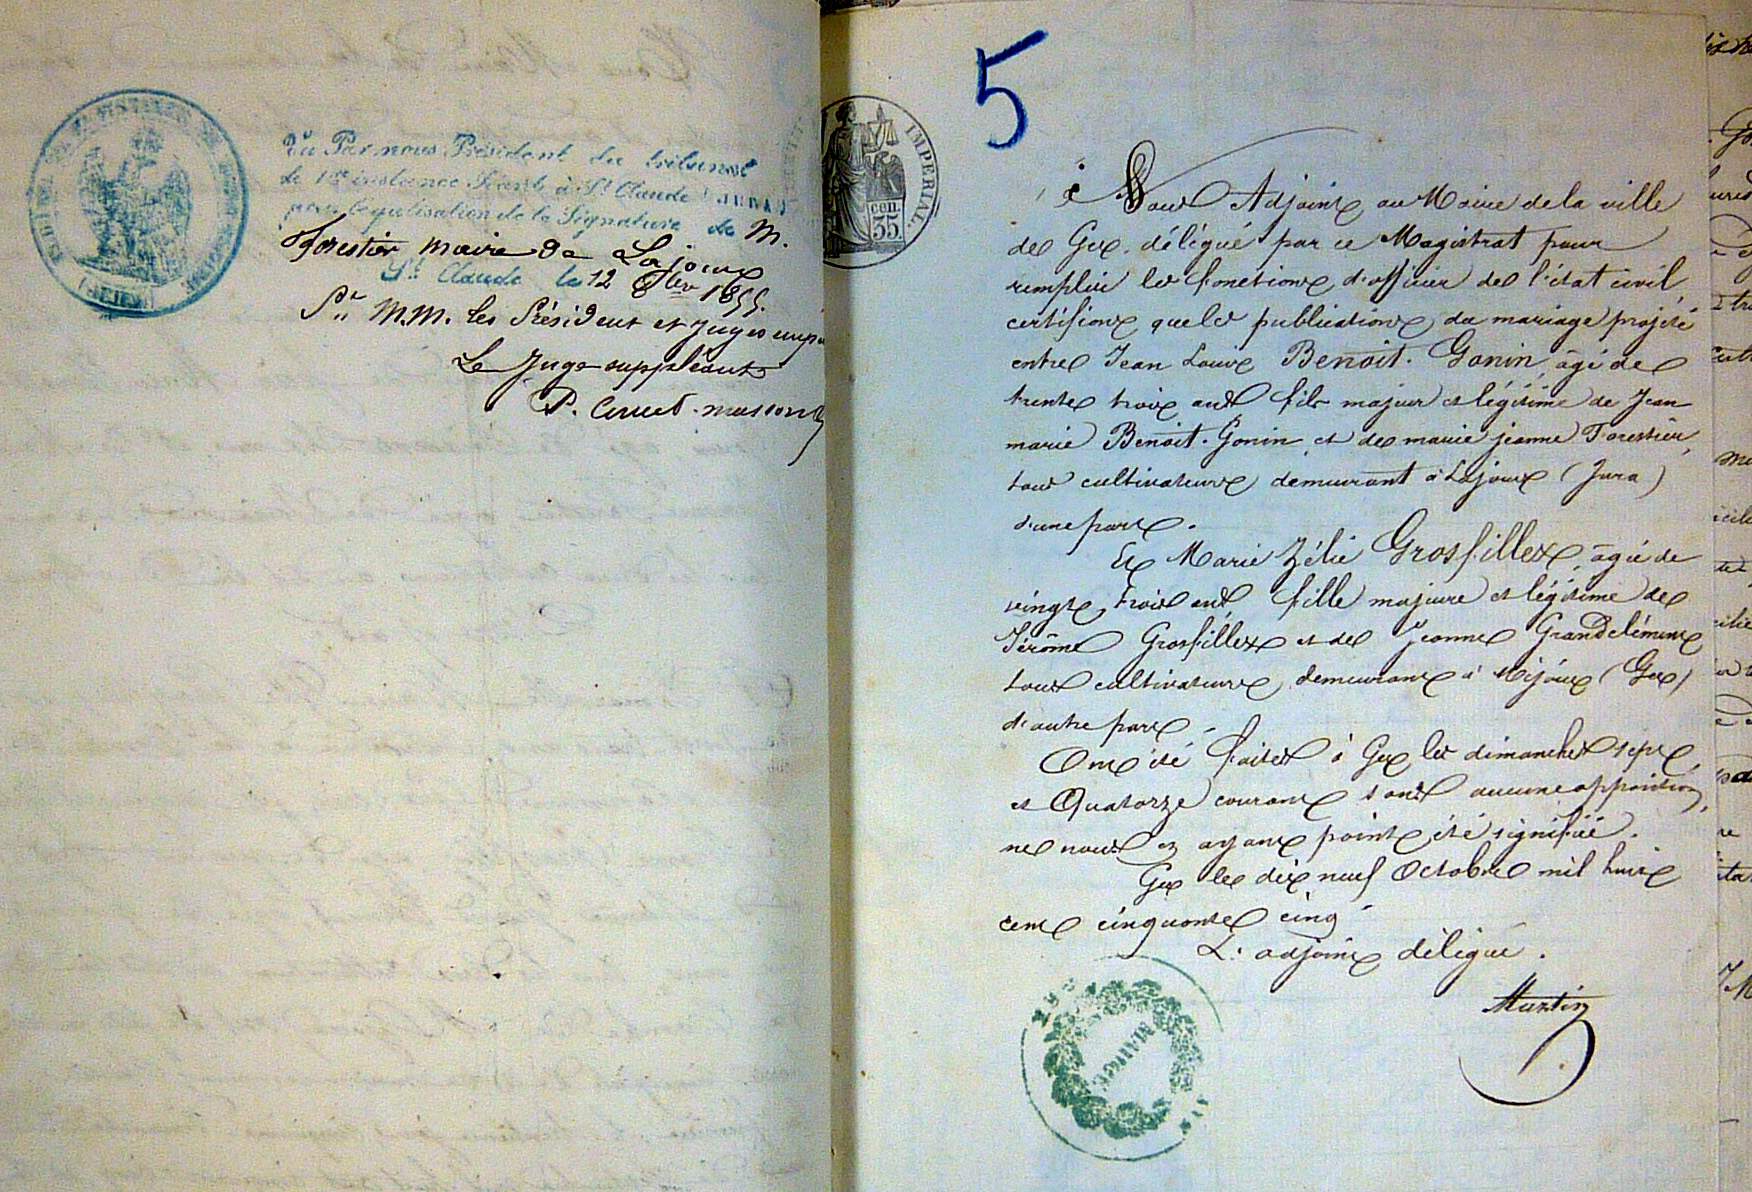 Vu Par nous Président du tribunal
de 1ère instance Séant à St Claude (JURA)
pour légalisation de la Signature de M.
Forestier maire de Lajoux
St Claude le 12 8bre 1855.
Pr M.M. les Président et Juges emp
Le Juge suppléant
5
IMPERIAL.
cen.
35.
Nous Adjoint au Maire de la ville
de Gex, délégué par ce Magistrat pour
remplir les fonctions d'officier de l'état civil,
certifions que les publications du mariage projeté
entre Jean Louis Benoit-Gonin, âgé de
trente trois ans fils majeur et légitime de Jean
marie Benoit-Gonin et de marie jeanne Forestier,
tous cultivateurs demeurant à Lajoux (Jura)
d'une part.
Et Marie Zélie Grosfillex, âgée de
vingt trois ans, fille majeure et légitime de
Jérôme Grosfillex et de Jeanne Grandclément
tous cultivateurs, demeurant à Mijoux (Gex)
d'autre part.
Ont été faites à Gex les dimanches sept
et Quatorze courant sans aucune opposition,
ne nous en ayant point été signifiée.
Gex le dix neuf Octobre mil huit
cent cinquante cinq
L'adjoint délégué.
Martin
MAIRIE